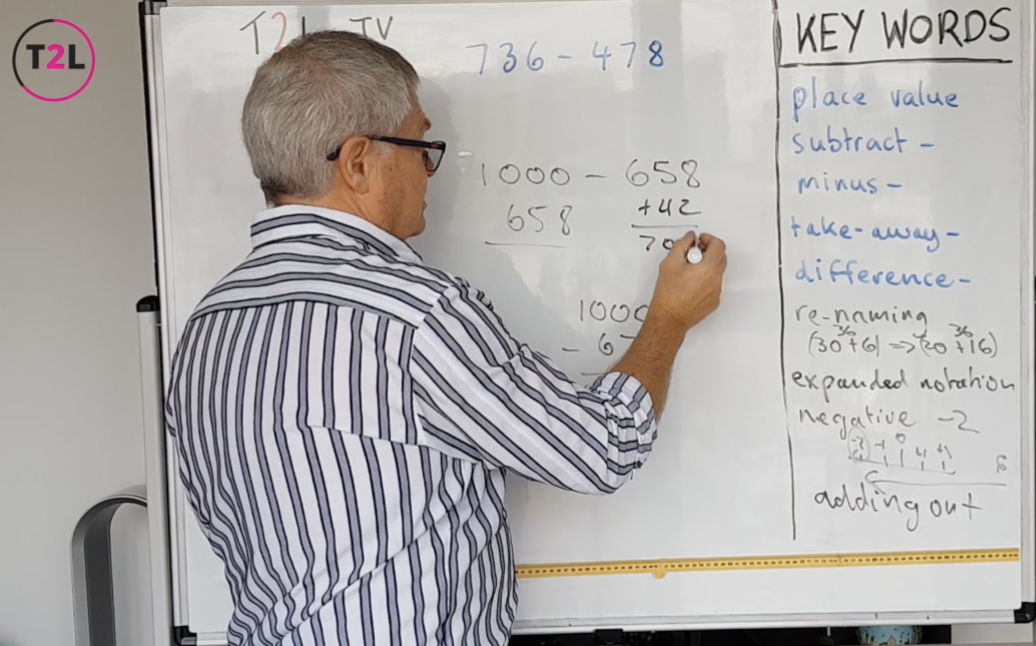 T2L
T2L TV
736 - 478
1000 - 658
658
+42
70
1000
- 6
KEY WORDS
place value
subtract -
minus -
take-away -
difference -
re-naming
36 36
(30+6) => (20+16)
expanded notation
negative -2
-2 -1 0
adding out